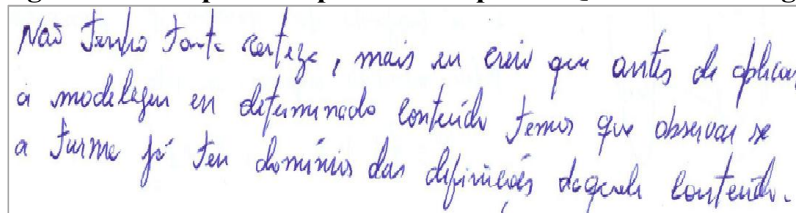 Não tenho tanta certeza, mais eu creio que antes de aplicar
a modelagem em determinado conteúdo temos que observar se
a turma já tem domínio das definições daquele conteúdo.